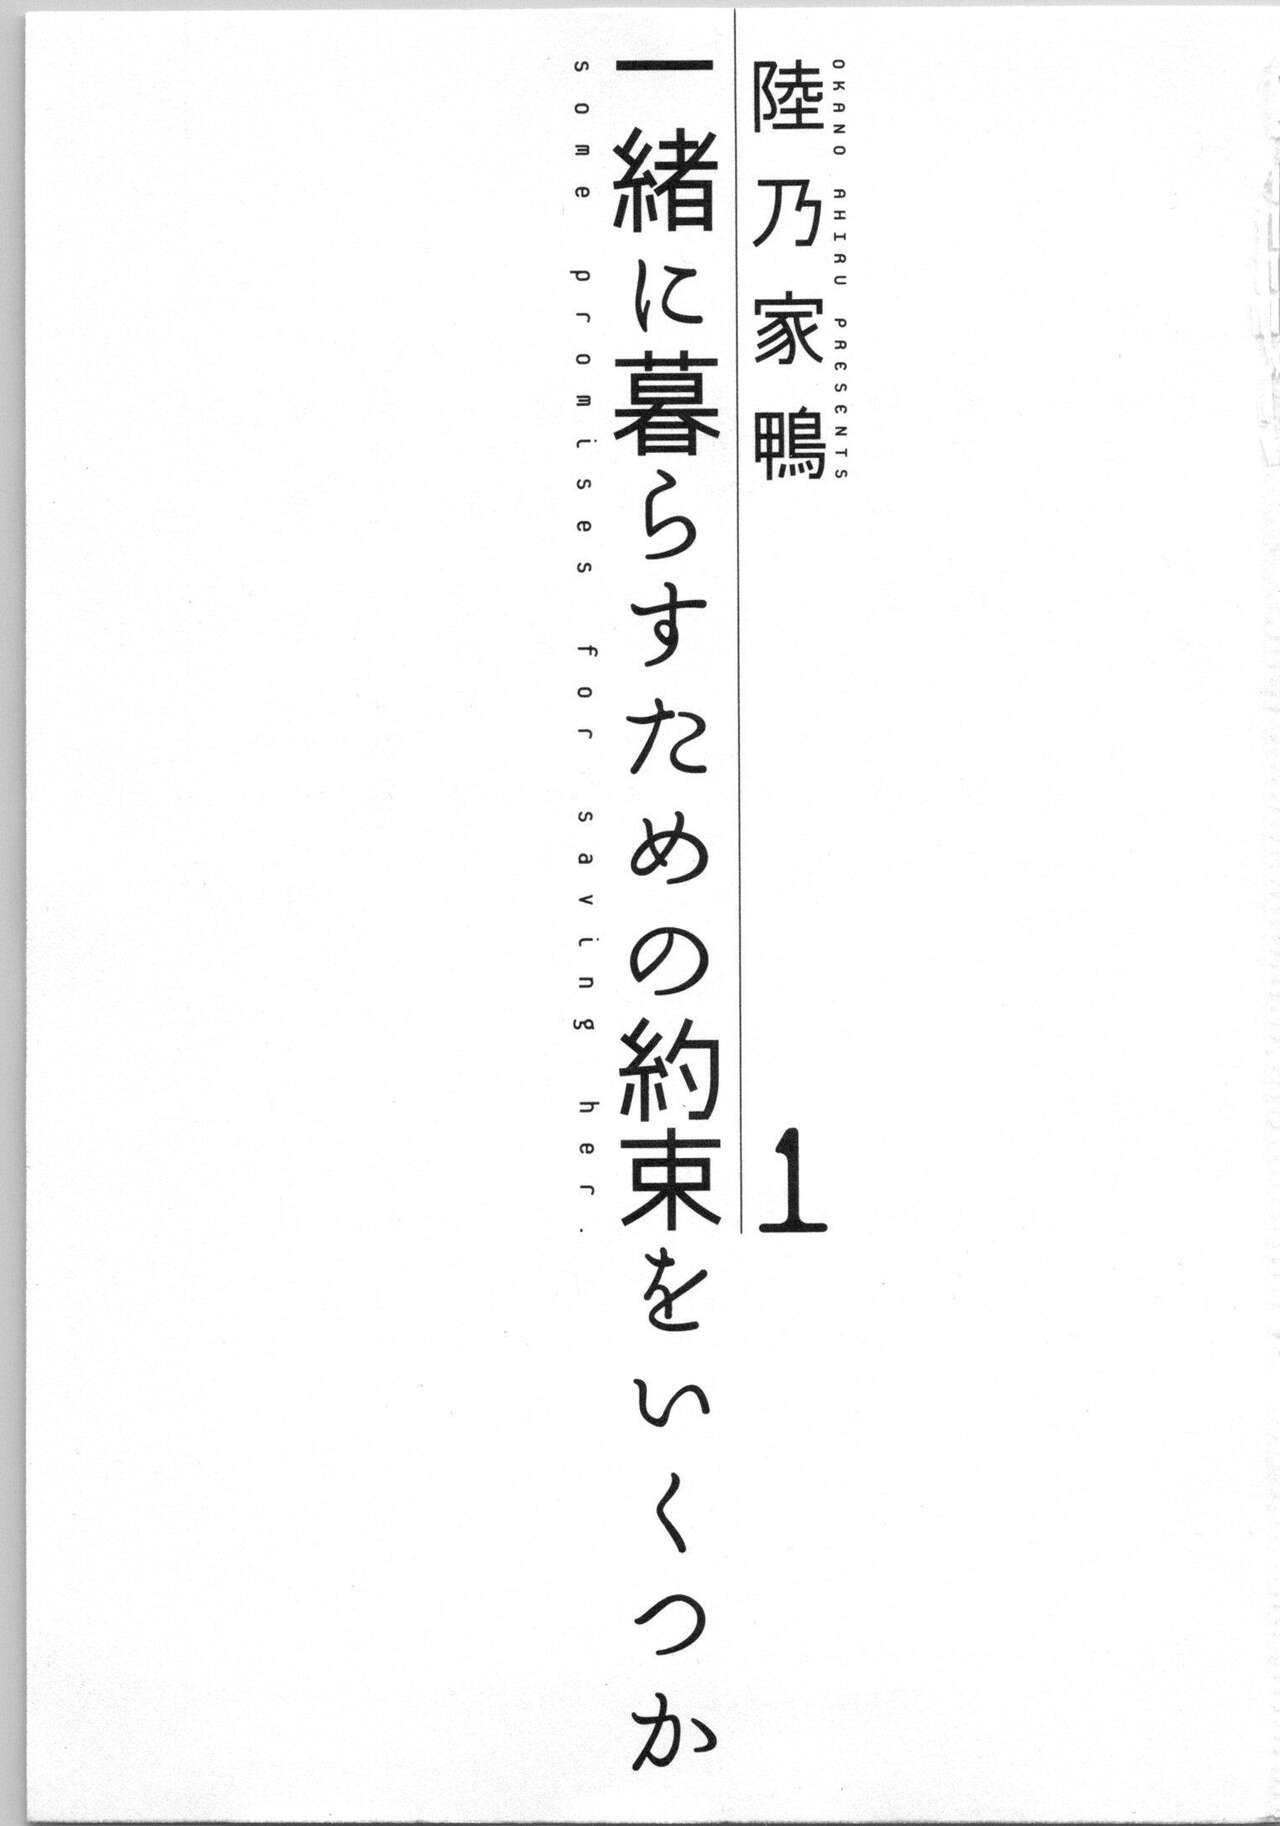 OKANO AHIRU PRESENTS
陸乃家鴨
1
一緒に暮らすための約束をいくつか
some promises for saving her.